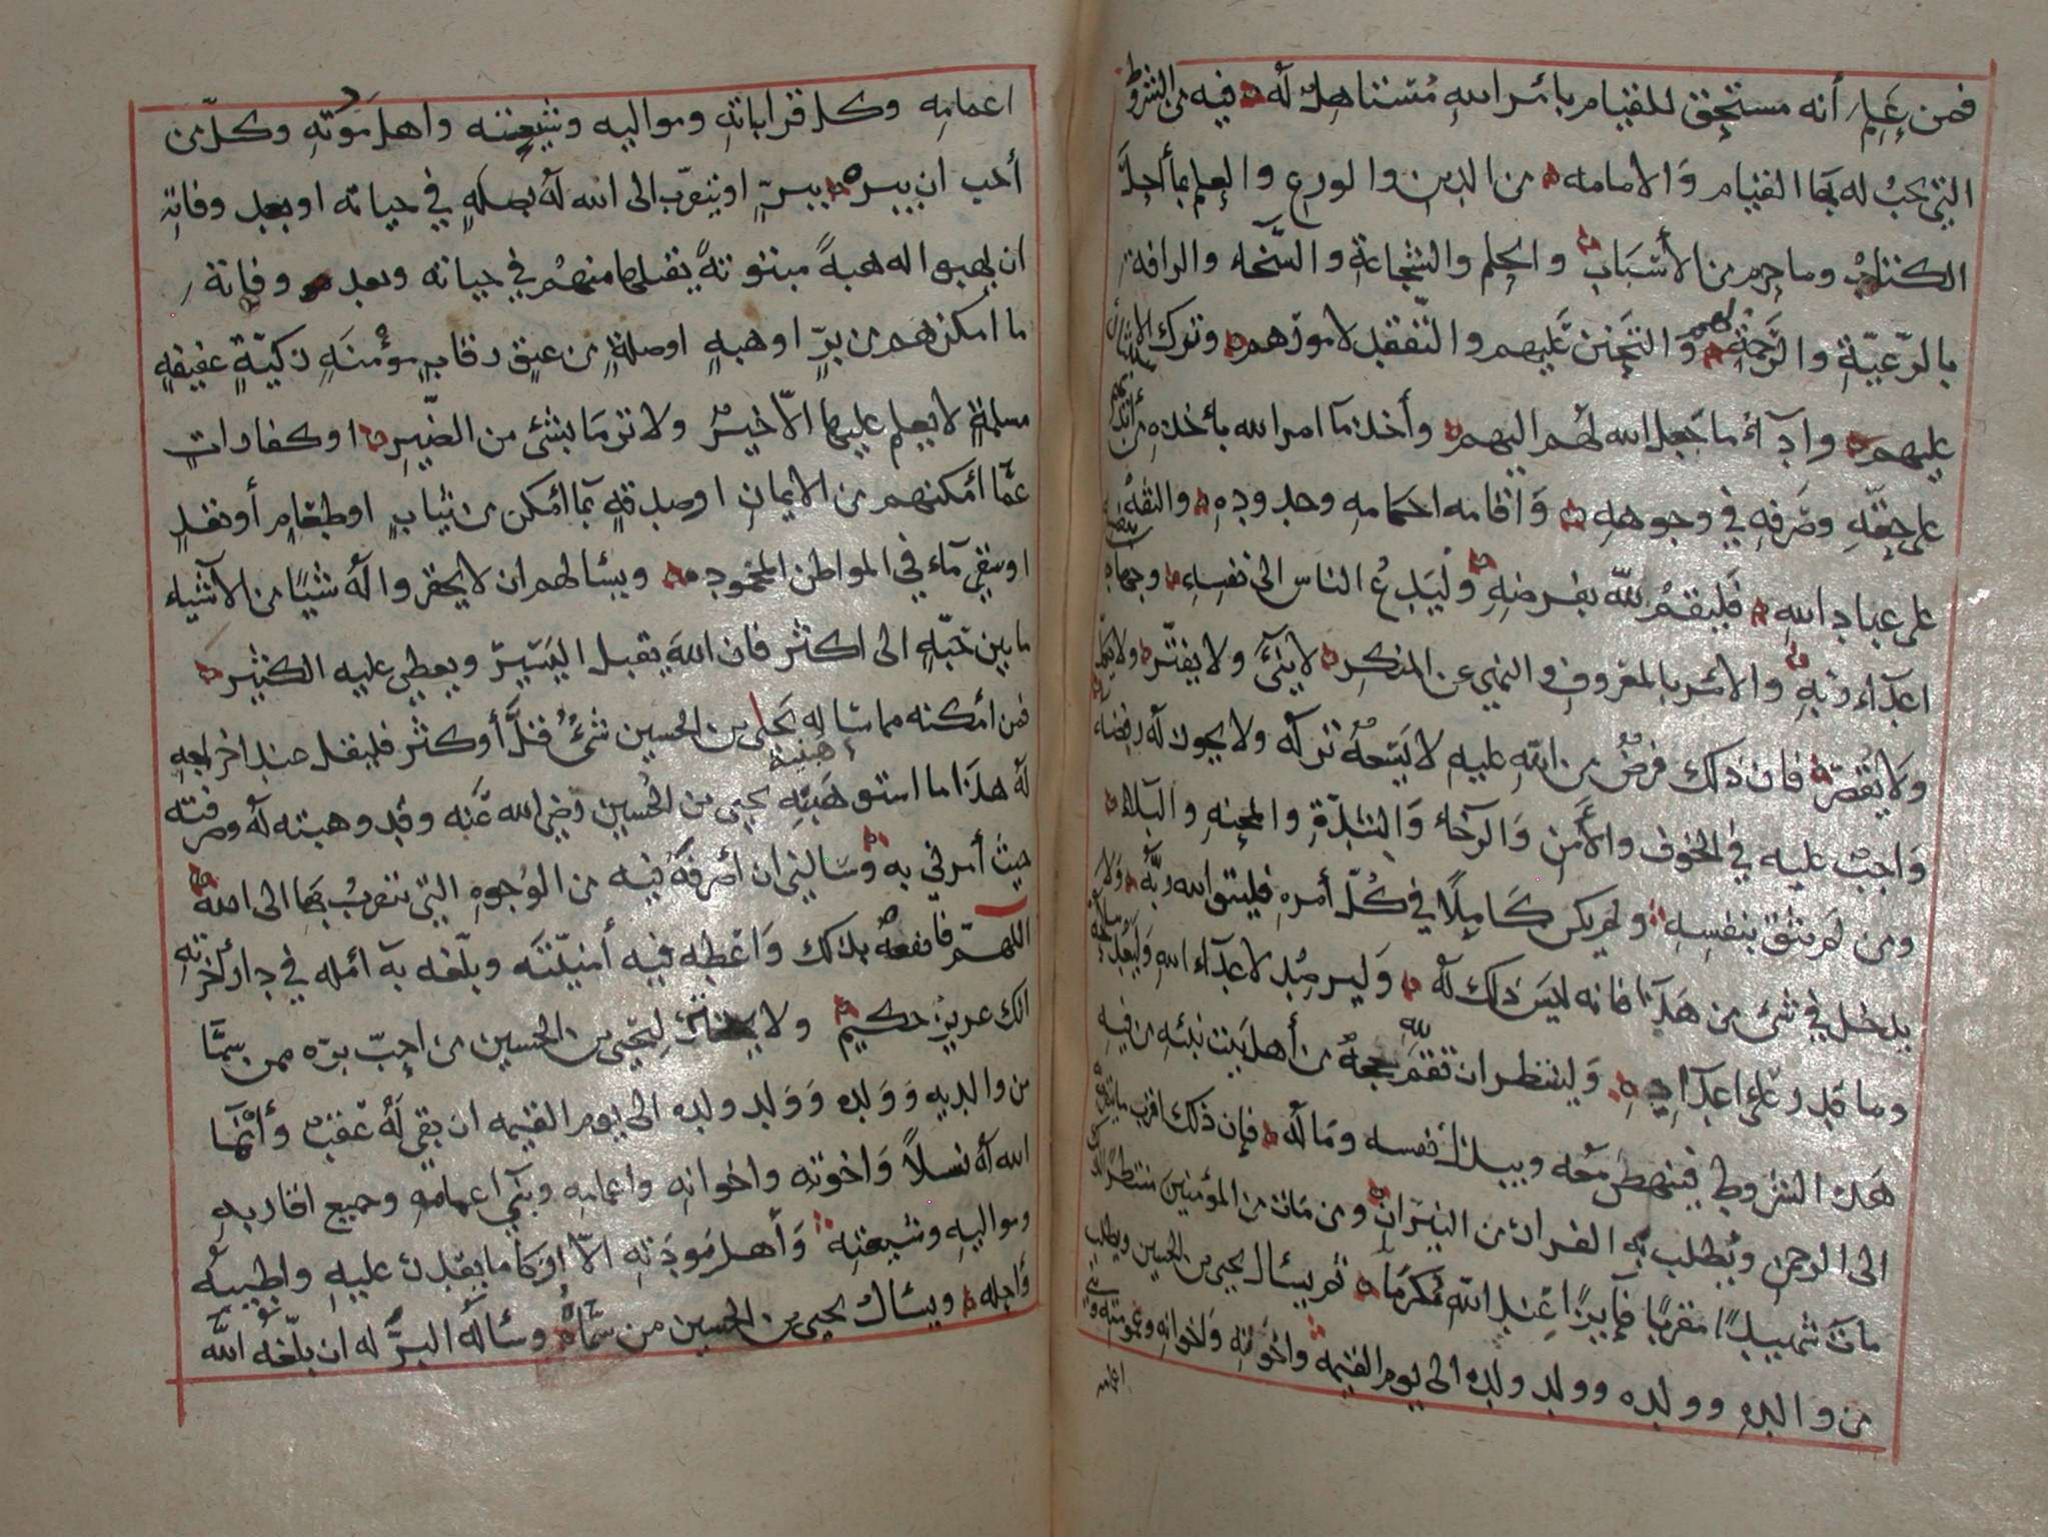 فمن علم أنه مستحق للقيام بأمر الله مستاهل له فيه من الشروط
التي يجب له بها القيام والامامه من الدين والورع والعلم بما أحل
الكتاب وما حرم من الأسباب والحلم والشجاعة والسخاء والرافة
بالرعية والرحمة لهم والتحنن عليهم والتفقد لامورهم وترك الاستئثار
عليهم وادآء ما جعل الله لهم اليهم وأخذ ما امر الله بأخذه منهم
على حقه وصرفه في وجوهه واقامه احكامه وحدوده والثقة
على عباد الله فليقم لله بفرضه وليدع الناس الى نفسه وجهاد
اعدآء ربه والامر بالمعروف والنهي عن المنكر لا يني ولا يفتر
ولا يقصر فان ذلك فرض من الله عليه لا يسعه تركه ولا يجوز له رفضه
واجب عليه في الخوف والأمن والرخاء والشدة والمحنه والبلاء
ومن لم يثق بنفسه ولم يكن كاملا في كل أمره فليتق الله ربه ولا
يدخل في شئ من هذا فانه ليس ذلك له وليرصد لاعدآء الله وليعد
وما قدر على اعدآئه ولينتظر ان تقم لله حجه من أهل بيت نبئه من فيه
هذه الشروط فينهض معه ويبذل نفسه وماله فإن ذلك اقرب
الى الرحمن ويطلب به الفرار من النيران ومن مات من المؤمنين منتظرا
مات شهيدا مقربا فآيزا عند الله مكرما ثم يسال يحيى بن الحسين ويطلب
من والده وولده وولد ولده الى يوم القيمه واخوته واخوانه وعمومته وبني
اعمامه
اعمامه وكل قراباته ومواليه وشيعته واهل مودته وكل من
أحب ان يبره ببر او يتقرب الى الله له بصله في حياته او بعد وفاته
ان يهبوا له هبة مبتوتة يقبلها منهم في حياته وبعد وفاته
ما أمكنهم من بر او هبه او صلة من عتق رقاب مؤمنه زكية عفيفه
مسلمة لا يعلم عليها الا خير ولا ترما بشئ من الضير او كفارات
عما أمكنهم من الايمان او صدقه بما أمكن من ثياب او طعام أو نقد
او سقي مآء في المواطن المحموده ويسالهم ان لا يحقروا له شيئا من الاشياء
ما بين حبه الى اكثر فان الله يقبل اليسير ويعطي عليه الكثير
فمن امكنه مما ساله يحيى بن الحسين شئ قل أو كثر فليقل عند اخراجه
له هذا ما استوهبنيه يحيى بن الحسين رضي الله عنه وقد وهبته له وصرفته
حيث أمرني به وسالني ان أصرفه فيه من الوجوه التي نتقرب بها الى الله
اللهم فانفعه بذلك واعطه فيه أمنيته وبلغه به امله في دار اخرته
انك عزيز حكيم ولا ليحيى بن الحسين من احب بره ممن سما
من والديه وولده وولد ولده الى يوم القيمه ان بقي له عقب وأنما
الله له نسلا واخوته واخوانه واعمامه وبني اعمامه وجميع اقاربه
ومواليه وشيعته وأهل مودته الا او كاما يقدر عليه واطيبه
واجله ويسال يحيى بن الحسين من سماه وساله البر له ان بلغه الله